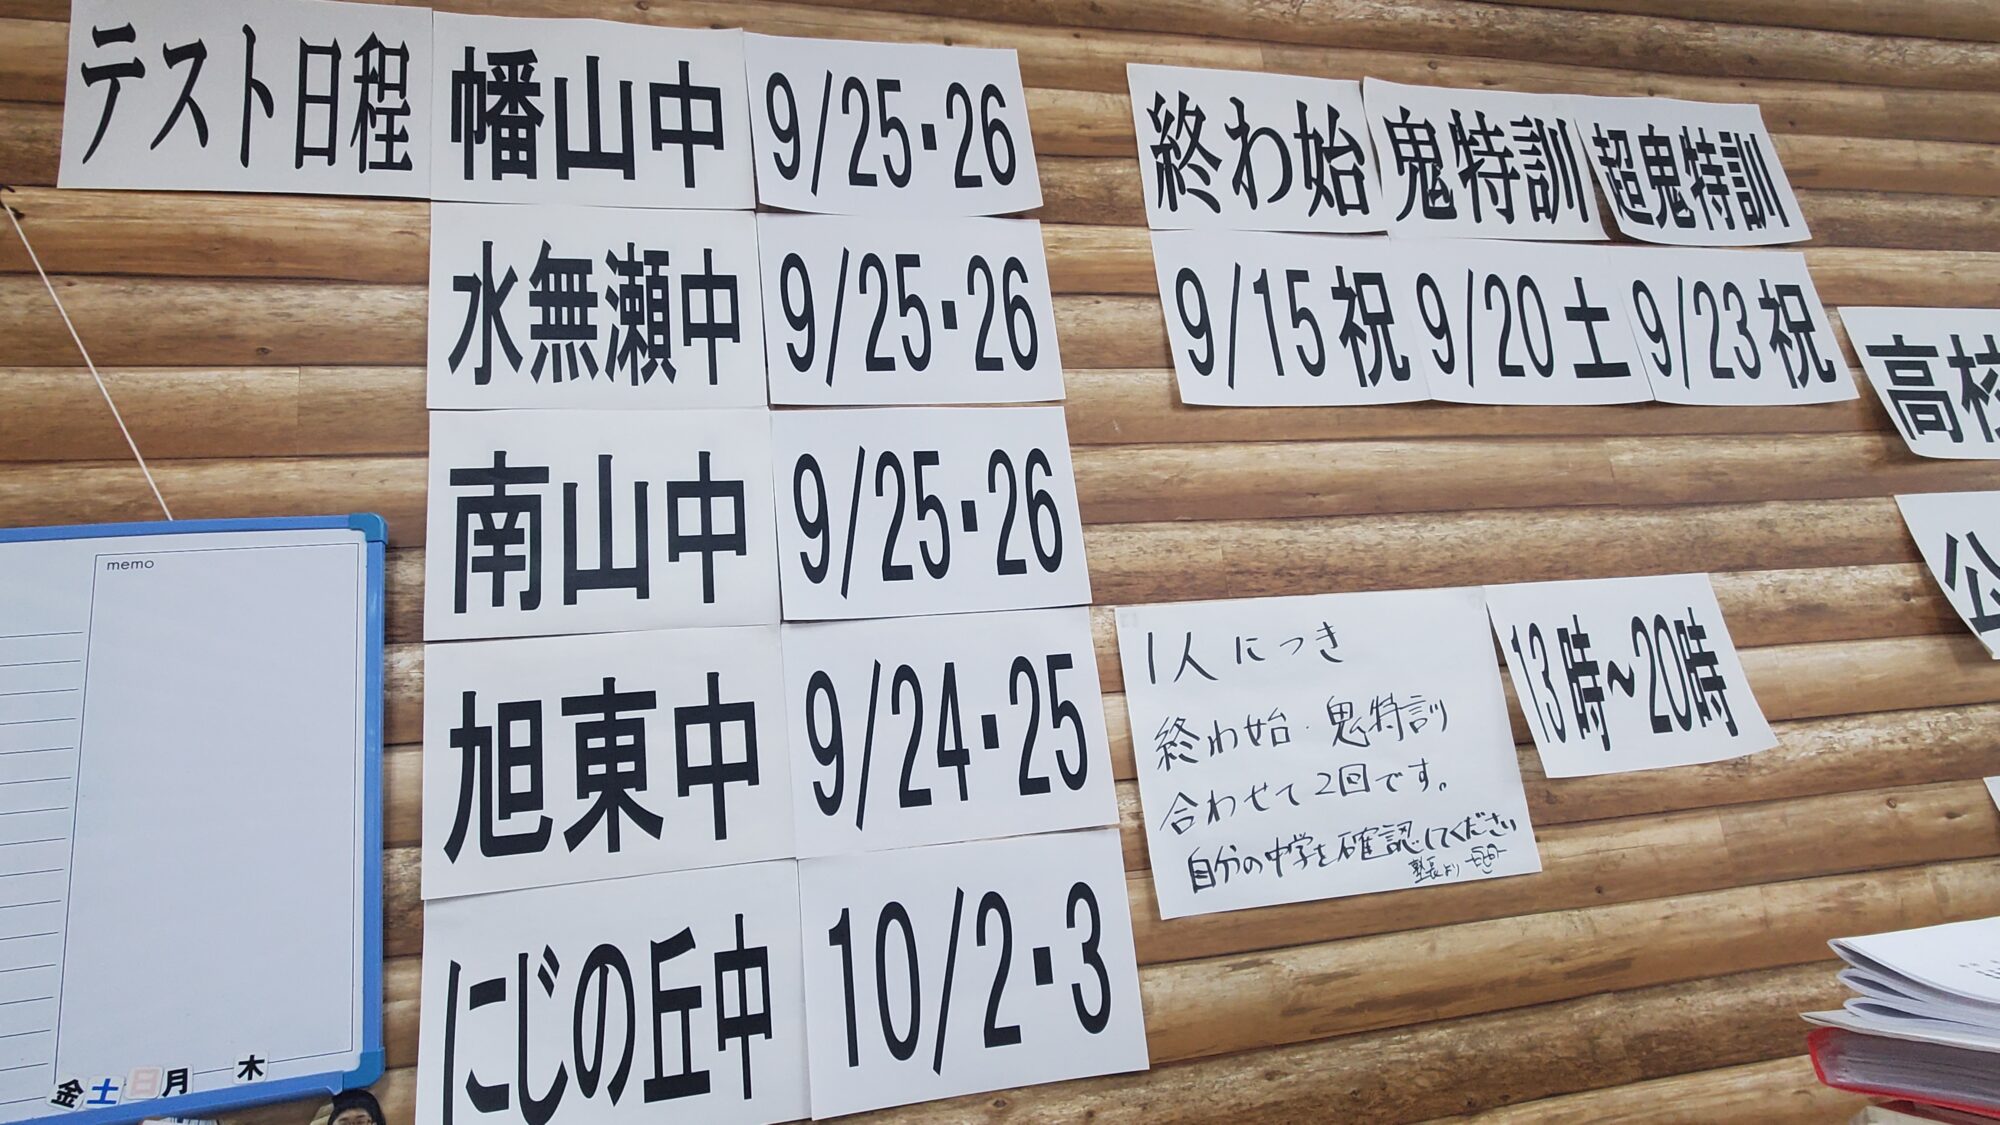 テスト日程
幡山中 9/25・26
水無瀬中 9/25・26
南山中 9/25・26
旭東中 9/24・25
にじの丘中 10/2・3
終わ始 鬼特訓 超鬼特訓
9/15祝 9/20土 9/23祝
13時~20時
1人につき
終わ始・鬼特訓
合わせて2回です。
自分の中学を確認してください
塾長より
高校
公
memo
金土日月 木